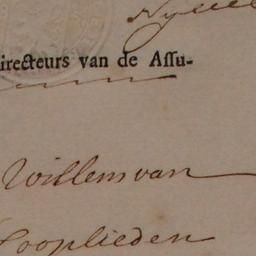 irecteurs van de Aſſu-
Willem van
Kooplieden